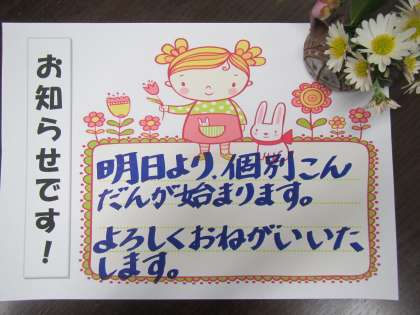 お知らせです！
明日より、個別こん
だんが始まります。
よろしくおねがいいた
します。